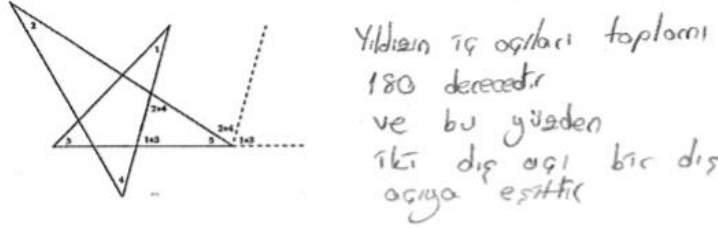 2
1
2+4
2+4
3
1+3
5
1+3
4
Yıldızın iç açıları toplamı
180 derecedir
ve bu yüzden
iki dış açı bir dış
açıya eşittir